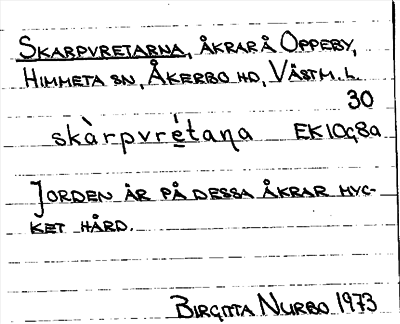 SKARPVRETARNA, ÅKRAR Å OPPEBY,
HIMMETA SN, ÅKERBO HD, VÄSTM. L.
30
skàrpvrétaṇa EK 10g8a
JORDEN ÄR PÅ DESSA ÅKRAR MYC-
KET HÅRD.
BIRGITTA NURBO 1973